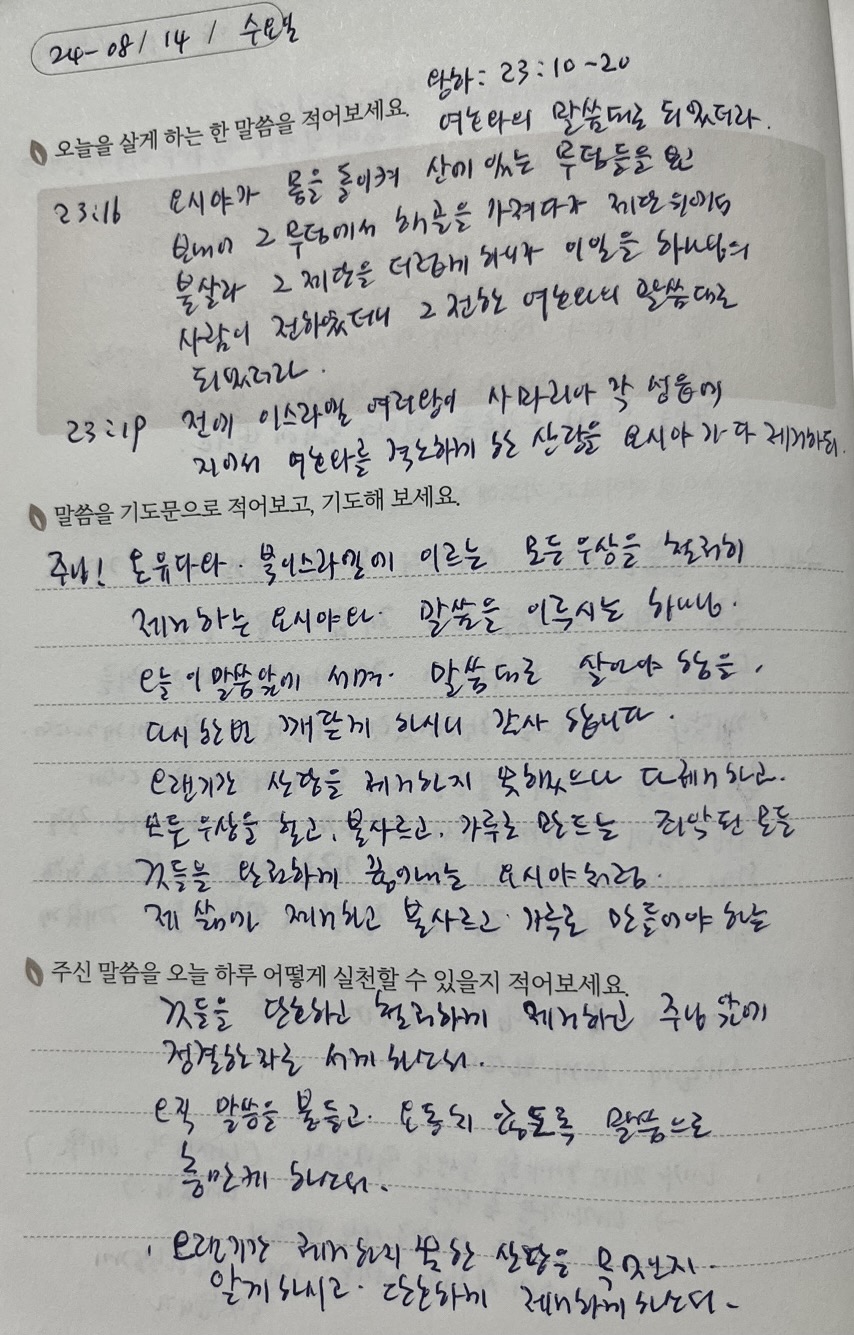 24-08/14/ 수요일
왕하: 23:10-20
오늘을 살게 하는 한 말씀을 적어보세요.
여호와의 말씀대로 되었더라.
23:16 요시야가 몸을 돌이켜 산에 있는 무덤들을 보고
보내어 그 무덤에서 해골을 가져다가 제단 위에서
불살라 그 제단을 더럽게 하니라 이 일을 하나님의
사람이 전하였더니 그 전한 여호와의 말씀대로
되었더라.
23:19 전에 이스라엘 여러왕이 사마리아 각 성읍에
지어서 여호와를 격노하게 한 산당을 요시야가 다 제거하되.
말씀을 기도문으로 적어보고, 기도해 보세요.
주님! 온유다와. 북이스라엘에 이르는 모든 우상을 철저히
제거하는 요시야와. 말씀을 이루시는 하나님.
오늘 이 말씀앞에 서며. 말씀대로 살아야 함을.
다시 한번 깨닫게 하시니 감사 합니다.
오랜기간 산당을 제거하지 못했으나 다 제거하고.
모든 우상을 헐고, 불사르고, 가루로 만드는 죄악된 모든
것들을 완전하게 끊어내는 요시야처럼.
제 삶에 제거하고 불사르고 가루로 만들어야 하는
주신 말씀을 오늘 하루 어떻게 실천할 수 있을지 적어보세요.
것들을 단호하고 철저하게 제거하고 주님 앞에
정결한자로 서게 하소서.
오직 말씀을 붙들고. 요동치 않도록 말씀으로
충만케 하소서.
. 오랜기간 제거하지 못한 산당을 무엇인지.
알게하시고. 단호하게 제거하게 하소서.